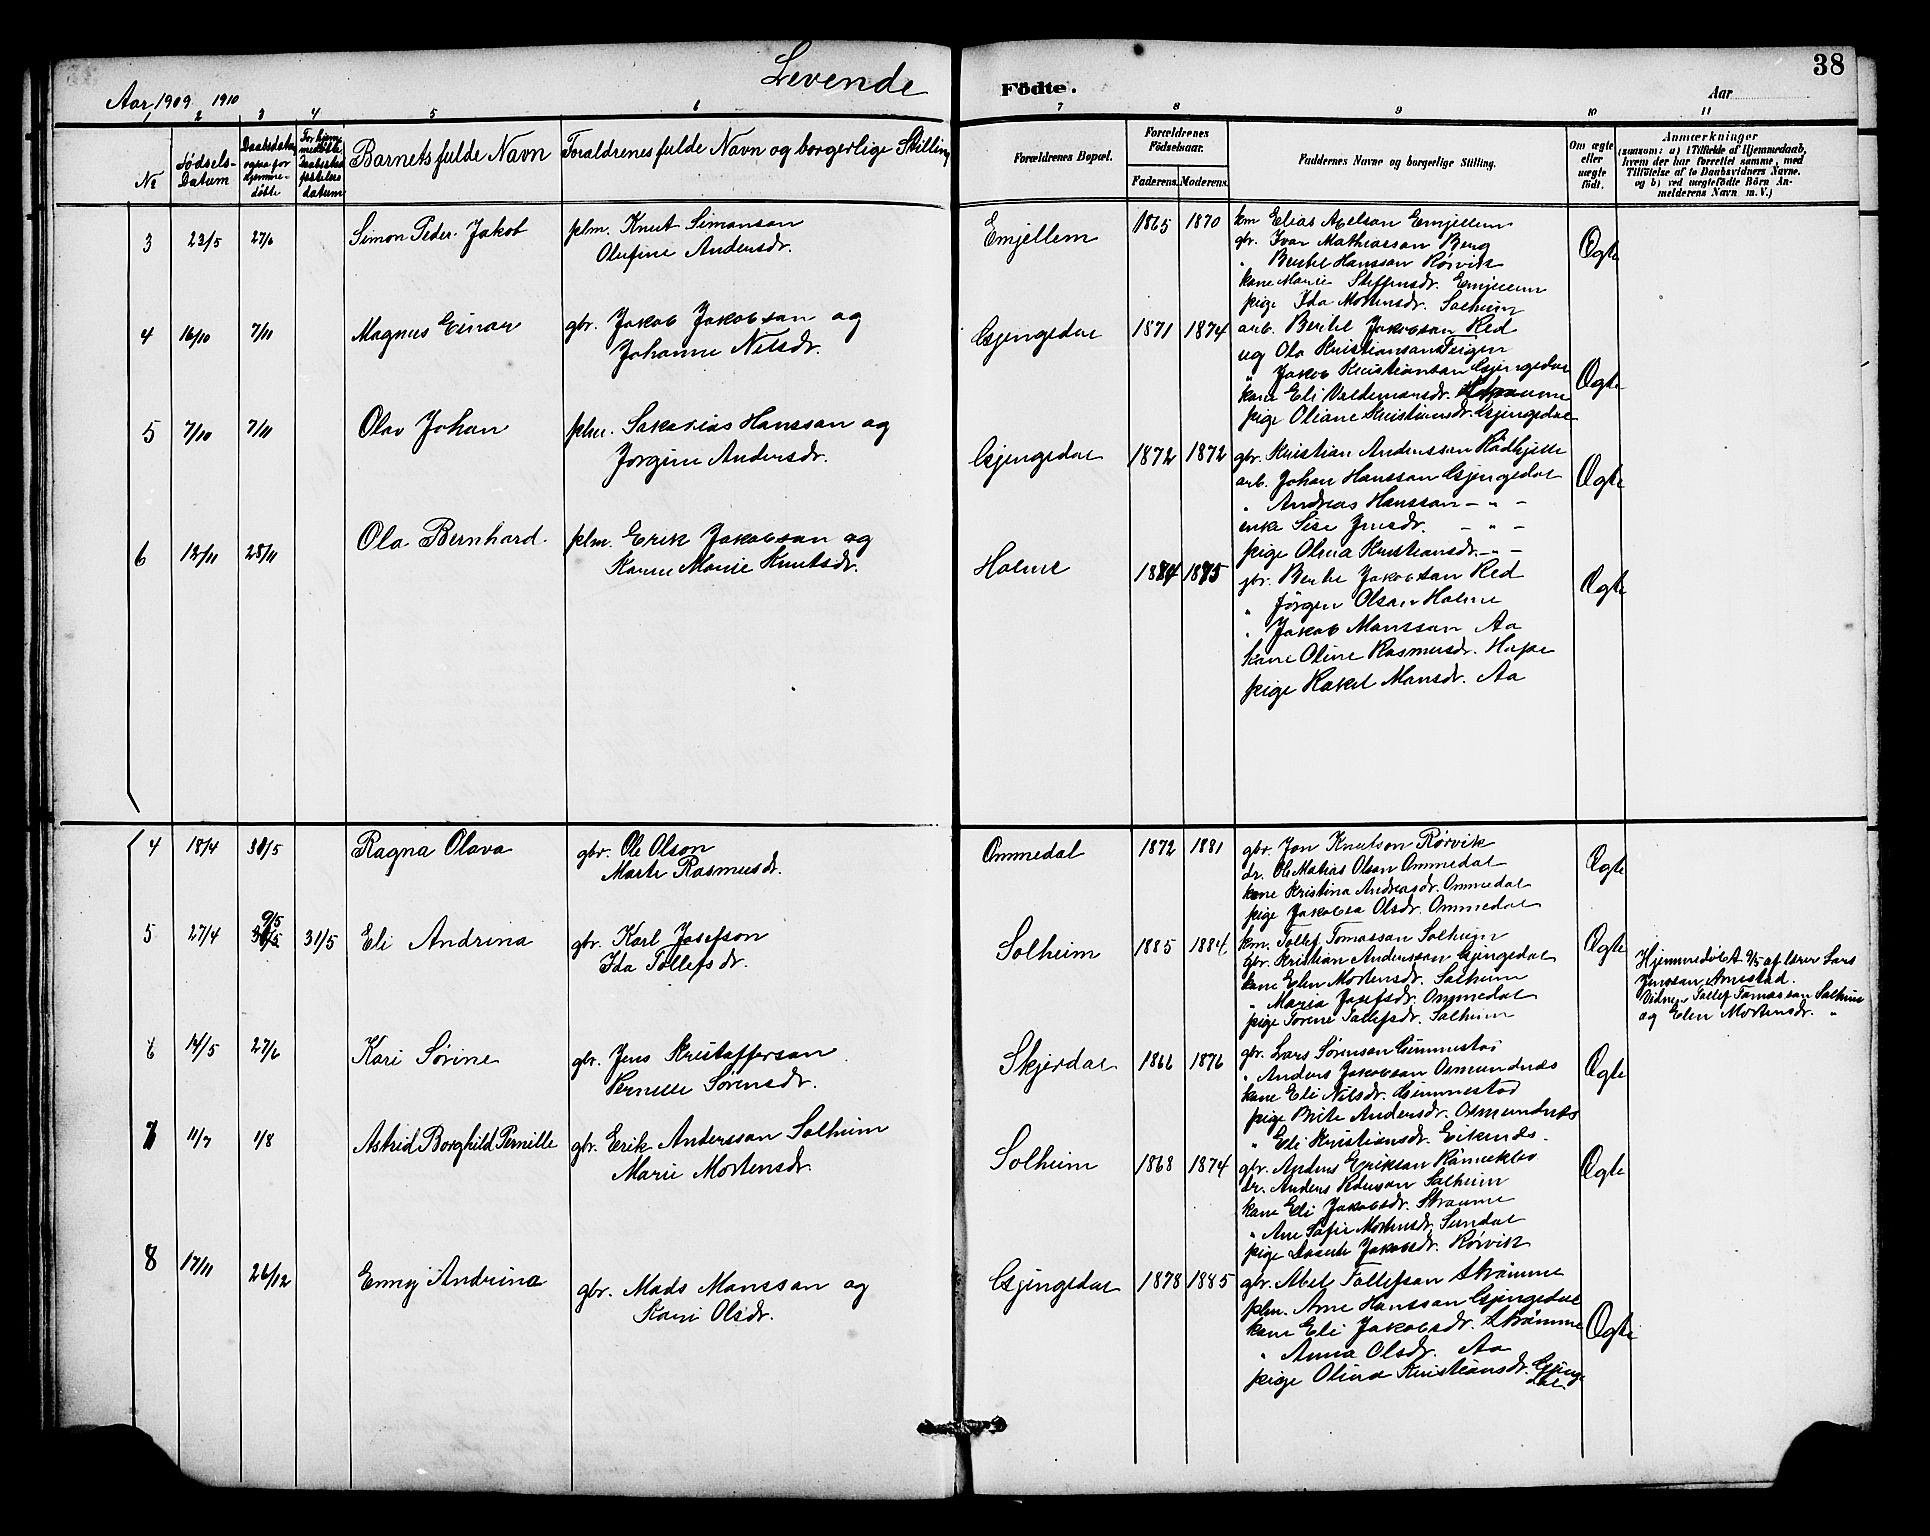 Levende
Fødte.
38
Aar 1909 1910
Aar
1 2 3 4 5 6 7 8 9 10 11
№
Fødsels-
Datum
Daabsdatum
ogsaa for
hjemme-
døbte
Barnets fulde Navn
Forældrenes fulde Navn og borgerlige Stilling
Forældrenes Bopæl.
Forældrenes
Fødselsaar.
Faderens. Moderens.
Faddernes Navne og borgerlige Stilling.
Om ægte
eller
uægte
født.
Anmærkninger
(saasom: a) i Tilfælde af Hjemmedaab,
hvem der har forrettet samme, med
Tilføielse af to Daabsvidners Navne.
og b) ved uægtefødte Børn An-
melderens Navn m. V.)
3 23/5 27/6 Simon Peder Jakob
plm. Knut Simonson
Olufine Andersdr.
Emjellem 1865 1870
km Elias Abelsan Emjellem
gbr. Ivar Mathiassan Berg
" Bertel Hanssan Rørvik
kone Marie Steffensdr. Emjellem
pige Ida Mortensdr. Solheim
Ægte
4 16/10 7/11 Magnus Einar
gbr. Jakob Jakobsan og
Johanne Nilsdr.
Gjengedal 1871 1874
arb. Bertel Jakobsan Red
ug Ola Kristiansan Teigen
" Jakob Kristiansan Gjengedal
kone Eli Valdemarsdr. Straume
pige Oliane Kristiansdr. Gjengedal
Ægte
5 7/10 7/11 Olav Johan
plm. Sakarias Hanssan og
Jorgine Andersdr.
Gjengedal 1872 1872
gbr. Kristian Anderssan Rødhjelle
arb. Johan Hanssan Gjengedal
" Andreas Hanssan - " -
enke Sise Jensdr. - " -
pige Olina Kristiansdr. - " -
Ægte
6 12/11 28/11 Ola Bernhard.
plm. Erik Jakobsan og
Karen Marie Knutsdr.
Holme 1884 1885
gbr. Bertel Jakobsan Red
" Jørgen Olsan Holme
" Jakob Mansson Aa
kone Oline Rasmusdr. Hope
pige Rakel Mansdr. Aa
Ægte
4 18/4 30/5 Ragna Olava
gbr. Ole Olson
Marte Rasmusdr.
Ommedal 1872 1881
gbr. Jon Knutson Rørvik
dr. Ole Matias Olson Ommedal
kone Kristina Andreasdr. Ommedal
pige Jakobea Olsdr. Ommedal
Ægte
5 27/4 9/5 31/5 Eli Andrina
gbr. Karl Josefson
Ida Tollefsdr.
Solheim 1885 1884
km. Tollef Tomassan Solheim
gbr. Kristian Anderssan Gjengedal
kone Elen Mortensdr. Solheim
" Maria Josefsdr. Ommedal
pige Torine Tollefsdr. Solheim
Ægte
Hjemmedøbt 9/5 af lærer Lars
Jenssan Arnestad.
Vidner Tollef Tomassan Solheim
og Elen Mortensdr. "
6 14/5 27/6 Kari Sørine
gbr. Jens Kristaffersan
Pernille Sørensdr.
Skjerdal 1866 1876
gbr. Lars Sørensan Gimmestad
" Anders Jakobsan Osmundnes
kone Eli Nilsdr. Gimmestad
pige Brite Andersdr. Osmundnes
" Eli Kristiansdr. Eikenes.
Ægte
7 11/7 1/8 Astrid Borghild Pernille
gbr. Erik Anderssan Solheim
Marie Mortensdr.
Solheim 1868 1874
gbr. Anders Eriksan
dr. Anders Pedersan Solheim
kone Eli Jakobsdr. Straume
" Ane Sofie Mortensdr. Sundal
pige Jakobsdr. Rørvik
Ægte
8 17/11 26/12 Emmy Andrina
gbr. Mads Manssan og
Kari Olsdr.
Gjengedal 1878 1885
gbr. Abel Tollefsan Strømme
plm. Arne Hanssan Gjengedal
kone Eli Jakobsdr. Strømme
" Anna Olsdr. Aa
pige Olina Kristiansdr. Gjenge
dal.
Ægte